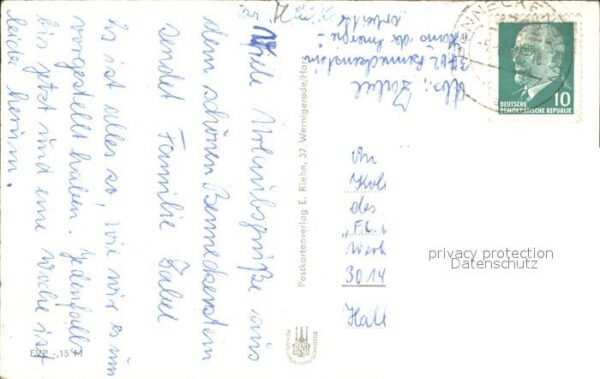 Viele Urlaubsgrüße aus
dem schönen Benneckenstein
sendet Familie Zabel
Es ist alles so, wie wir es uns
vorgestellt haben. Jedenfalls
bis jetzt und eine Woche ist
leider herum.
EVP -,15 M
Postkartenverlag E. Riehn, 37 Wernigerode/Harz
Abs.: Zabel
3702 Benneckenstein
BENNECKEN
DEUTSCHE
DEMOKRATISCHE REPUBLIK
10
An
Kol
des
werk
3014
Hall
privacy protection
Datenschutz